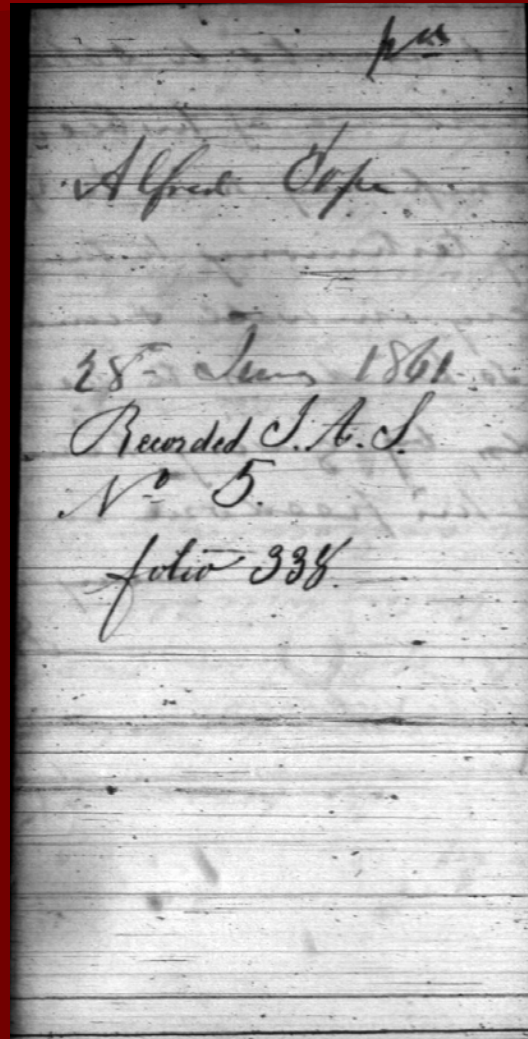 Alfred Pope
28 June 1861
Recorded J. A. S.
No 5.
folio 338.